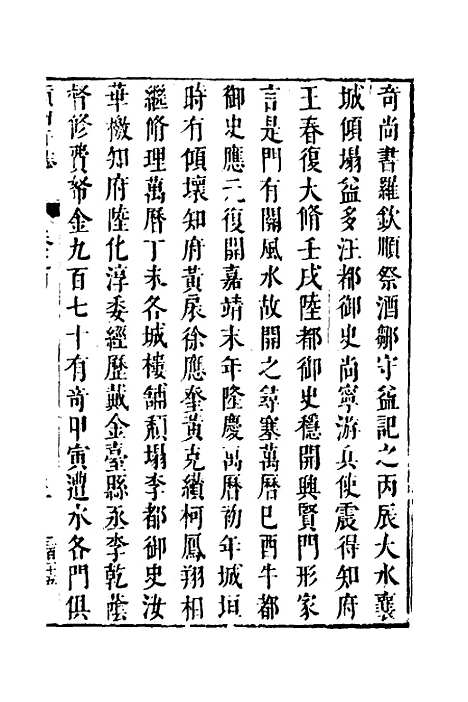 奇尚書羅欽順祭酒鄒守益記之丙辰大水襄
城傾塌益多汪都御史尚寧游兵使震得知府
王春復大脩壬戌陸都御史穩開興賢門形家
言是門有關風水故開之尋塞萬曆己酉牛都
御史應元復開嘉靖末年隆慶萬曆初年城垣
時有傾壞知府黃扆徐應奎黃克纘柯鳳翔相
繼脩理萬曆丁未各城樓舖頹塌李都御史汝
華檄知府陸化淳委經歷戴金臺縣丞李乾蔭
督修費帑金九百七十有奇甲寅遭水各門俱